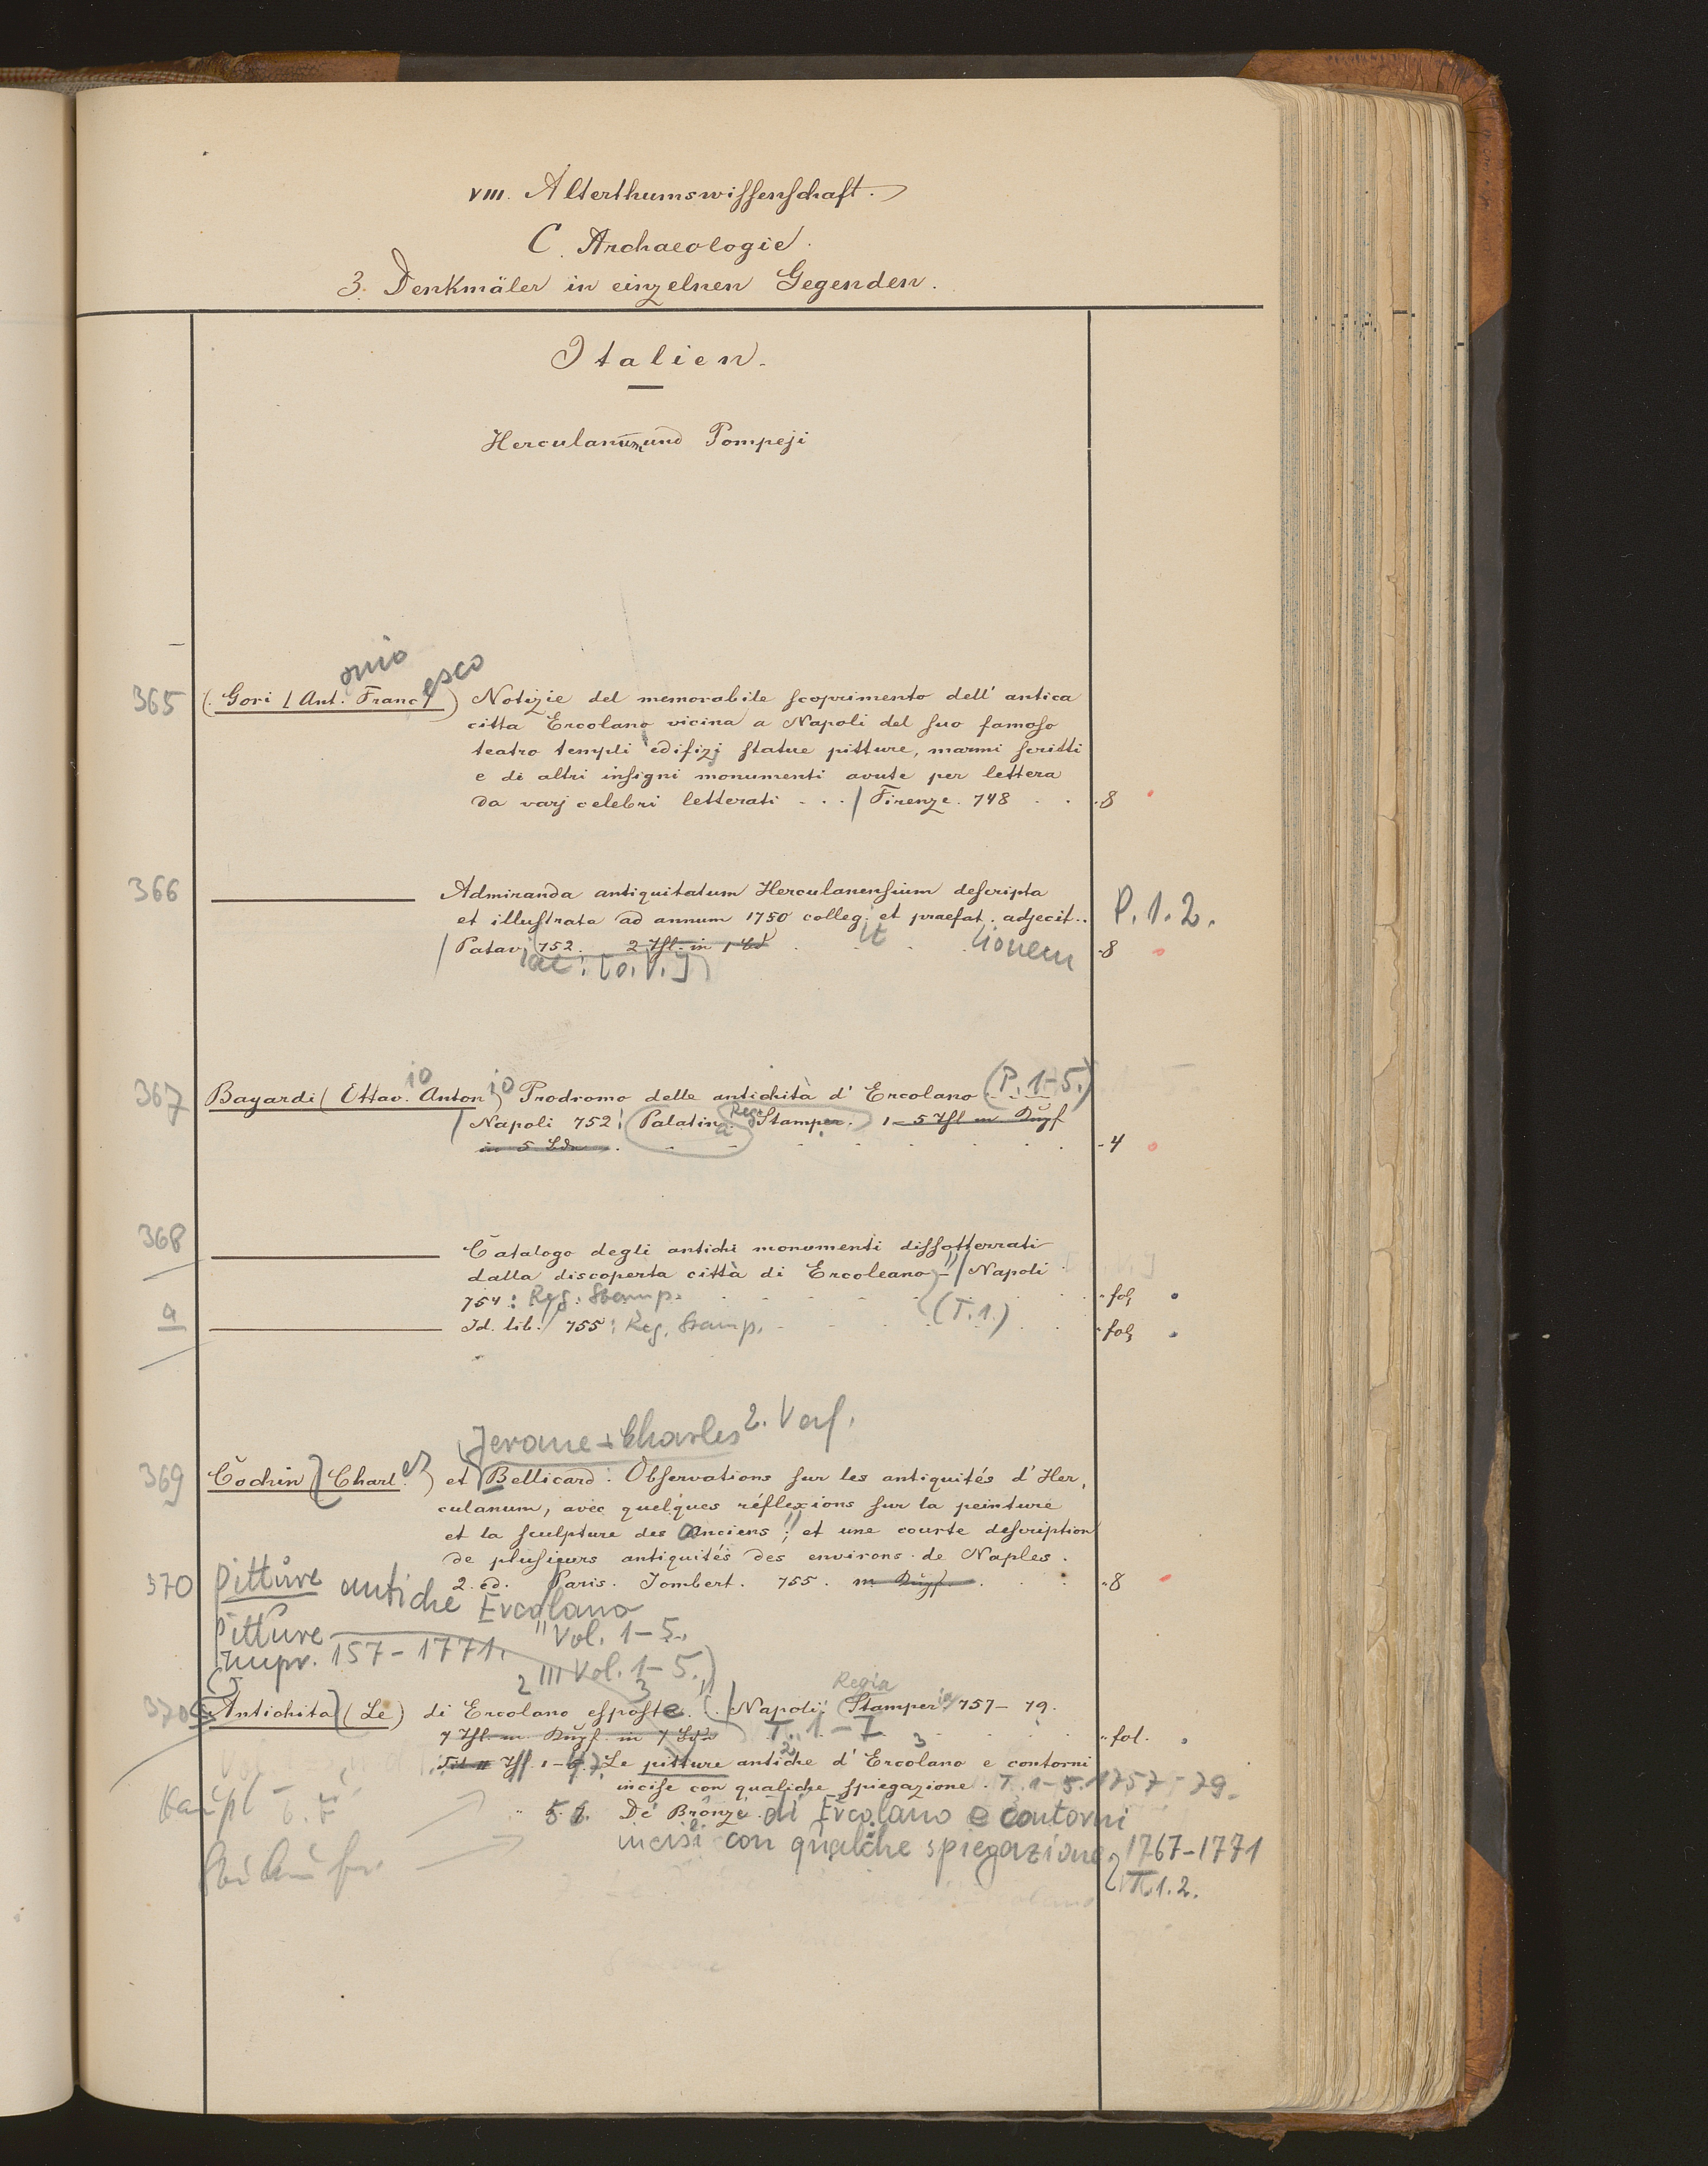 VIII. Alterthumswissenschaft.
C. Archaeologie.
3. Denkmäler in einzelnen Gegenden.
Italien.
Herculanum und Pompeji
onio esco
365 (Gori (Ant. Franc.) Notizie del memorabile scoprimento dell' antica
citta Ercolano vicina a Napoli del suo famoso
teatro templi edifizj statue pitture, marmi scritti
e di altri insigni monumenti avute per lettera
da varj celebri letterati . . . / Firenze. 748 . . 8
366 Admiranda antiquitatum Herculanensium descripta
et illustrata ad annum 1750 colleg. et praefat. adjecit.. P. 1. 2.
it tionem
/ Patav. 752. 2 Thl. in 1 Bd 8
iae: [o. V.]
io io (P. 1-5.)
367 Bayardi (Ottav. Anton) Prodromo delle antichità d' Ercolano
Reg.
/ Napoli 752: Palatina Stamper. 1-5 Thl m Kupf
in 5 Bdn 4
368 Catalogo degli antichi monumenti dissotterrati
dalla discoperta città di Ercoleano / Napoli
754: Reg. Stamp. fol.
a Id. lib. 755: Reg. Stamp. (T. 1.) fol.
Jerome-Charles 2. Verf.
369 Cochin (Charles) et Bellicard: Observations sur les antiquités d' Her,
culanum, avec quelques réflexions sur la peinture
et la sculpture des Anciens; et une courte description
de plusieurs antiquités des environs de Naples.
2. éd. Paris. Jombert. 755. m Kupf. 8
370 Pitture antiche Ercolano
Pitture Vol. 1-5.
Impr. 157-1771.
III Vol. 1-5.)
2 3 Regia
370 Antichita (Le) di Ercolano esposte. / Napoli: Stamperia 757-79.
7 Thl. m Kupf. in 7 Bdn T. 1-7 fol.
Thl. 1-5. Le pitture antiche d' Ercolano e contorni
incise con qualche spiegazione. T. 1-5. 1757-79.
5. De' Bronzi di Ercolano e contorni
incisi con qualche spiegazione, 1767-1771
T. 1. 2.